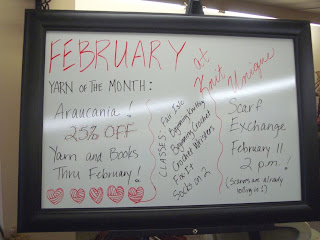 FEBRUARY at
Knit Unique
YARN OF THE MONTH:
Araucania!
25% OFF
Yarn and Books
Thru February!
CLASSES:
Fair Isle
Beginning Knitting
Beginning Crochet
Crochet Whiskers
Fix It
Socks on 2
Scarf
Exchange
February 11
2 p.m.!
(Scarves are already
rolling in!)